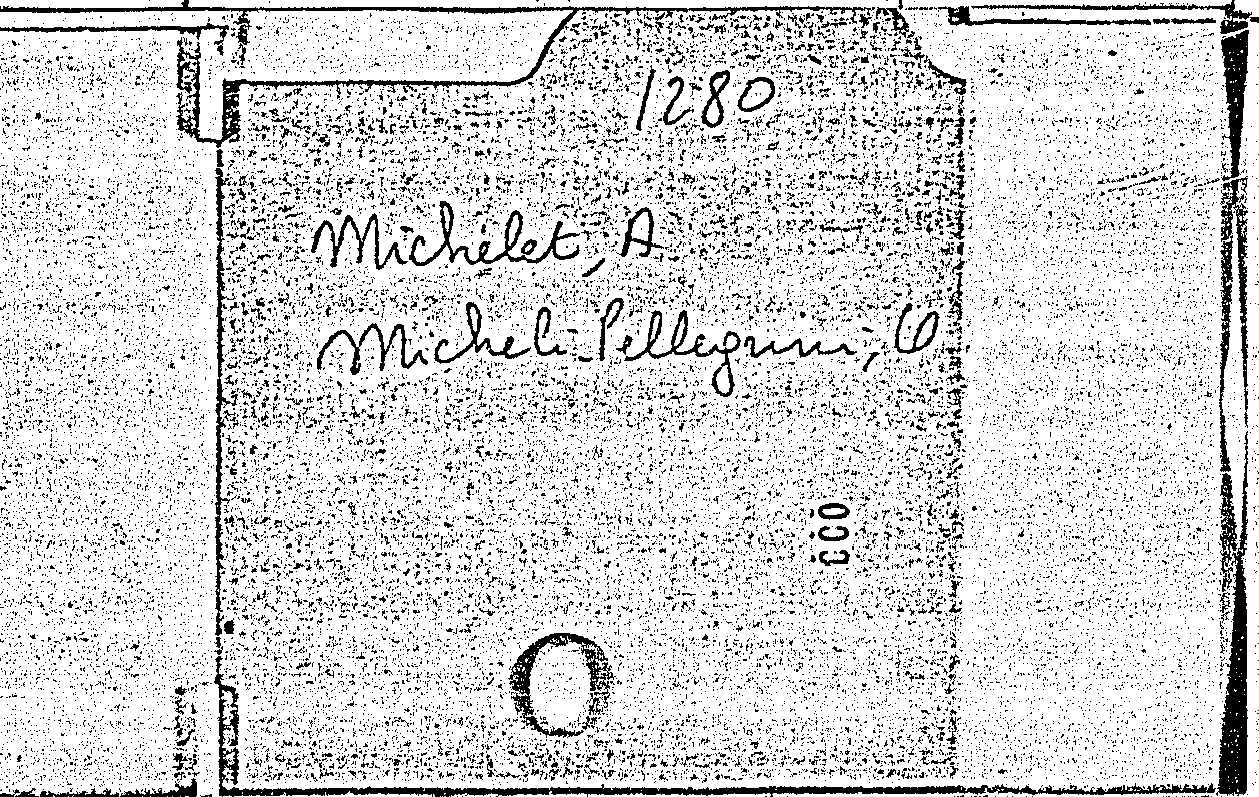 1280
Michelet, A
Micheli-Pellegrini, C
000